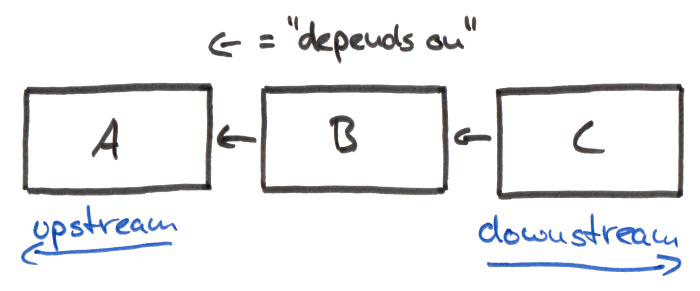 ← = "depends on"
A ← B ← C
upstream
downstream